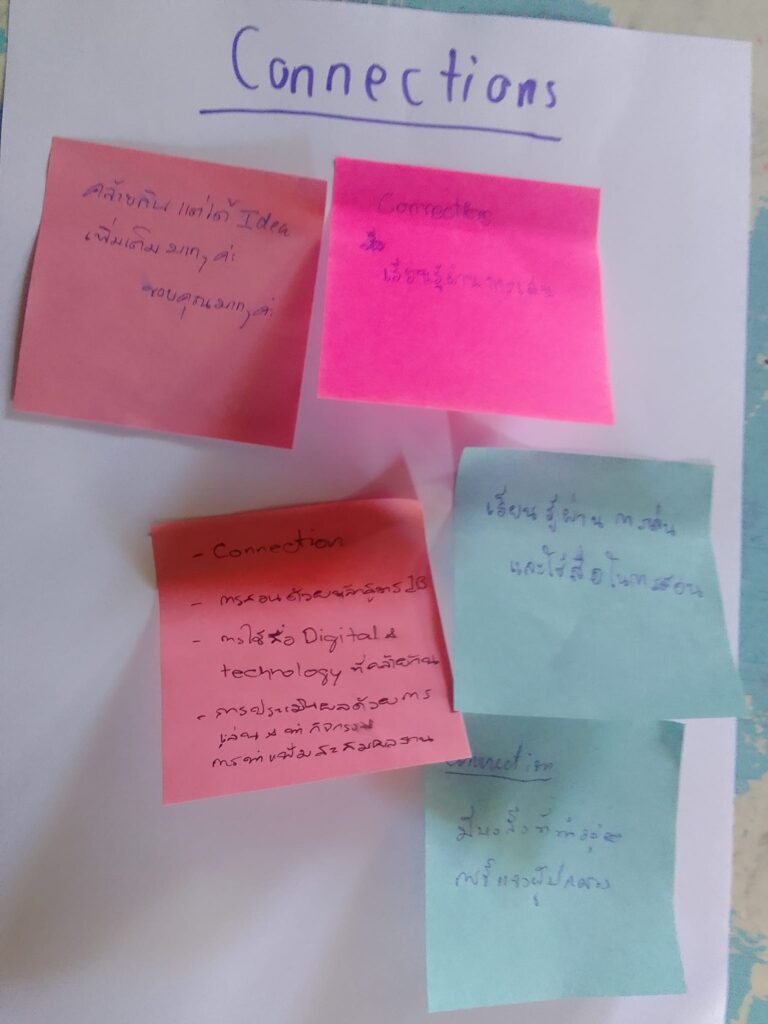 Connections
คล้ายกัน แต่ได้ Idea
เพิ่มเติม มากๆ ค่ะ
ขอบคุณมากๆ ค่ะ
Connections
เรียนรู้ผ่านการเล่น
- Connection
- การสอนด้วยหลักสูตร IB
- การใช้สื่อ Digital &
technology ที่คล้ายกัน
- การประเมินผลด้วยการ
เล่น & ทำกิจกรรม
การทำแฟ้มสะสมผลงาน
เรียนรู้ผ่าน การเล่น
และใช้สื่อในการสอน
Connection
การชี้แจงผู้ปกครอง